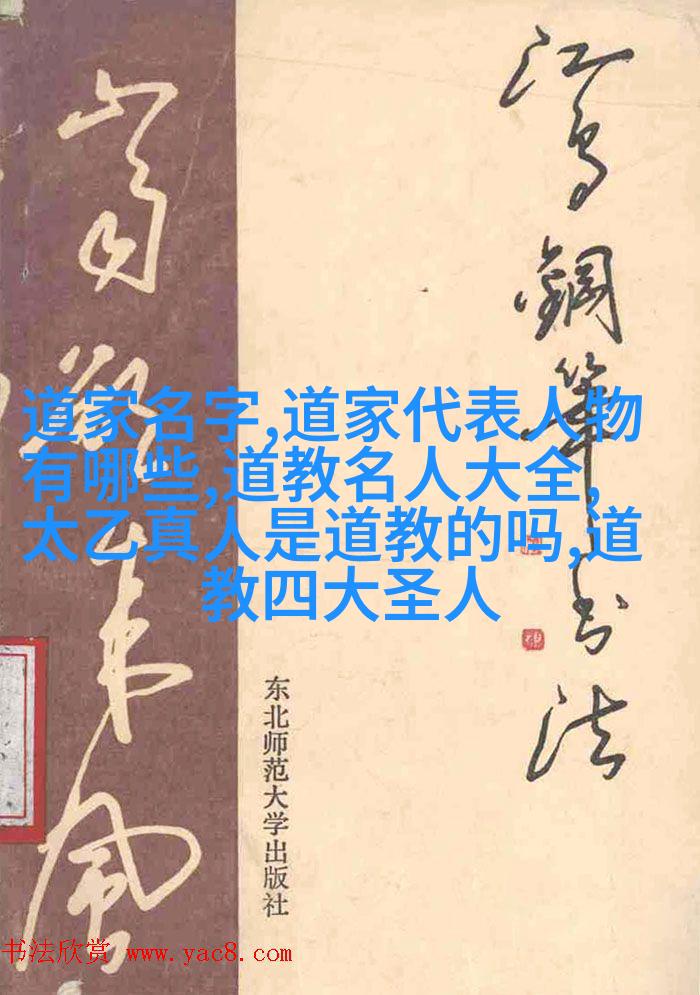 江鸟鋼筆书法
道家名字,道家代表人物
有哪些,道教名人大全,
太乙真人是道教的吗,道
教四大圣人
东北师范大学出版社
书法欣赏 www.yac8.com